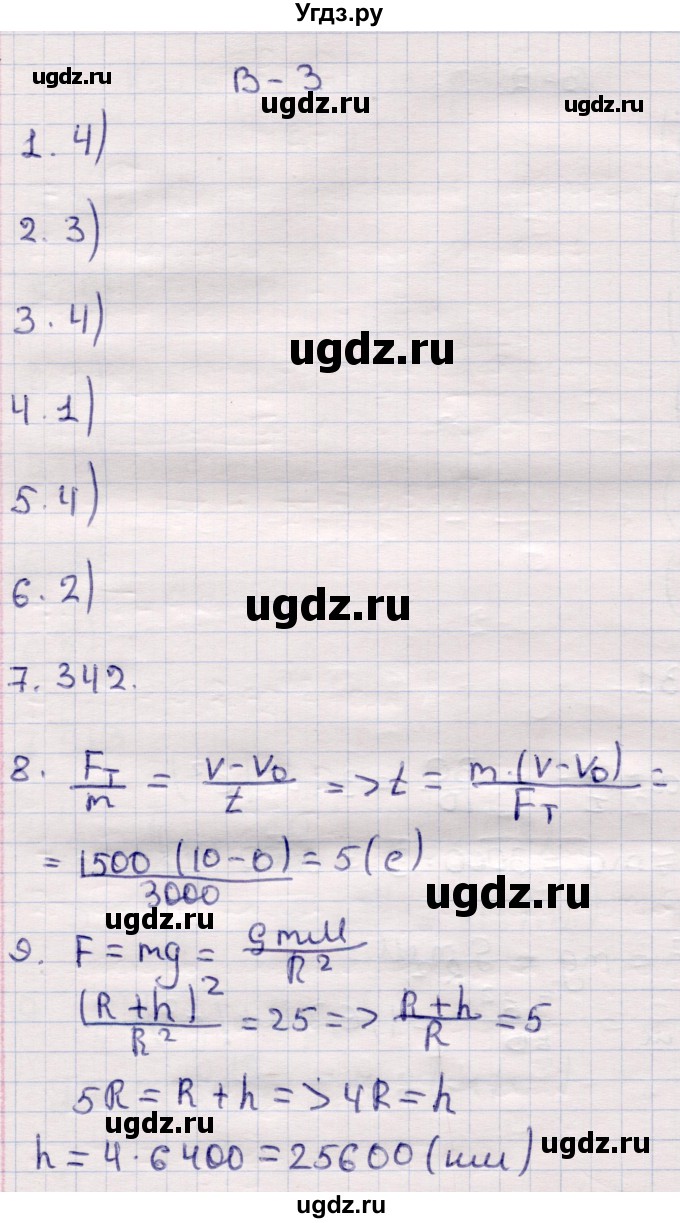 Угдз.ру
ugdz.ru
ugdz.ru
В - 3
ugdz.ru
1. 4)
2. 3)
3. 4)
ugdz.ru
4. 1)
5. 4)
6. 2)
ugdz.ru
7. 342.
8. F_T/m = (v-v_0)/t => t = m·(v-v_0)/F_T =
= 1500 (10-0)/3000 = 5 (с)
ugdz.ru
ugdz.ru
9. F = mg = GmM/R^2
(R+h)^2/R^2 = 25 => (R+h)/R = 5
5R = R + h => 4R = h
ugdz.ru
h = 4·6400 = 25600 (км)
ugdz.ru
ugdz.ru